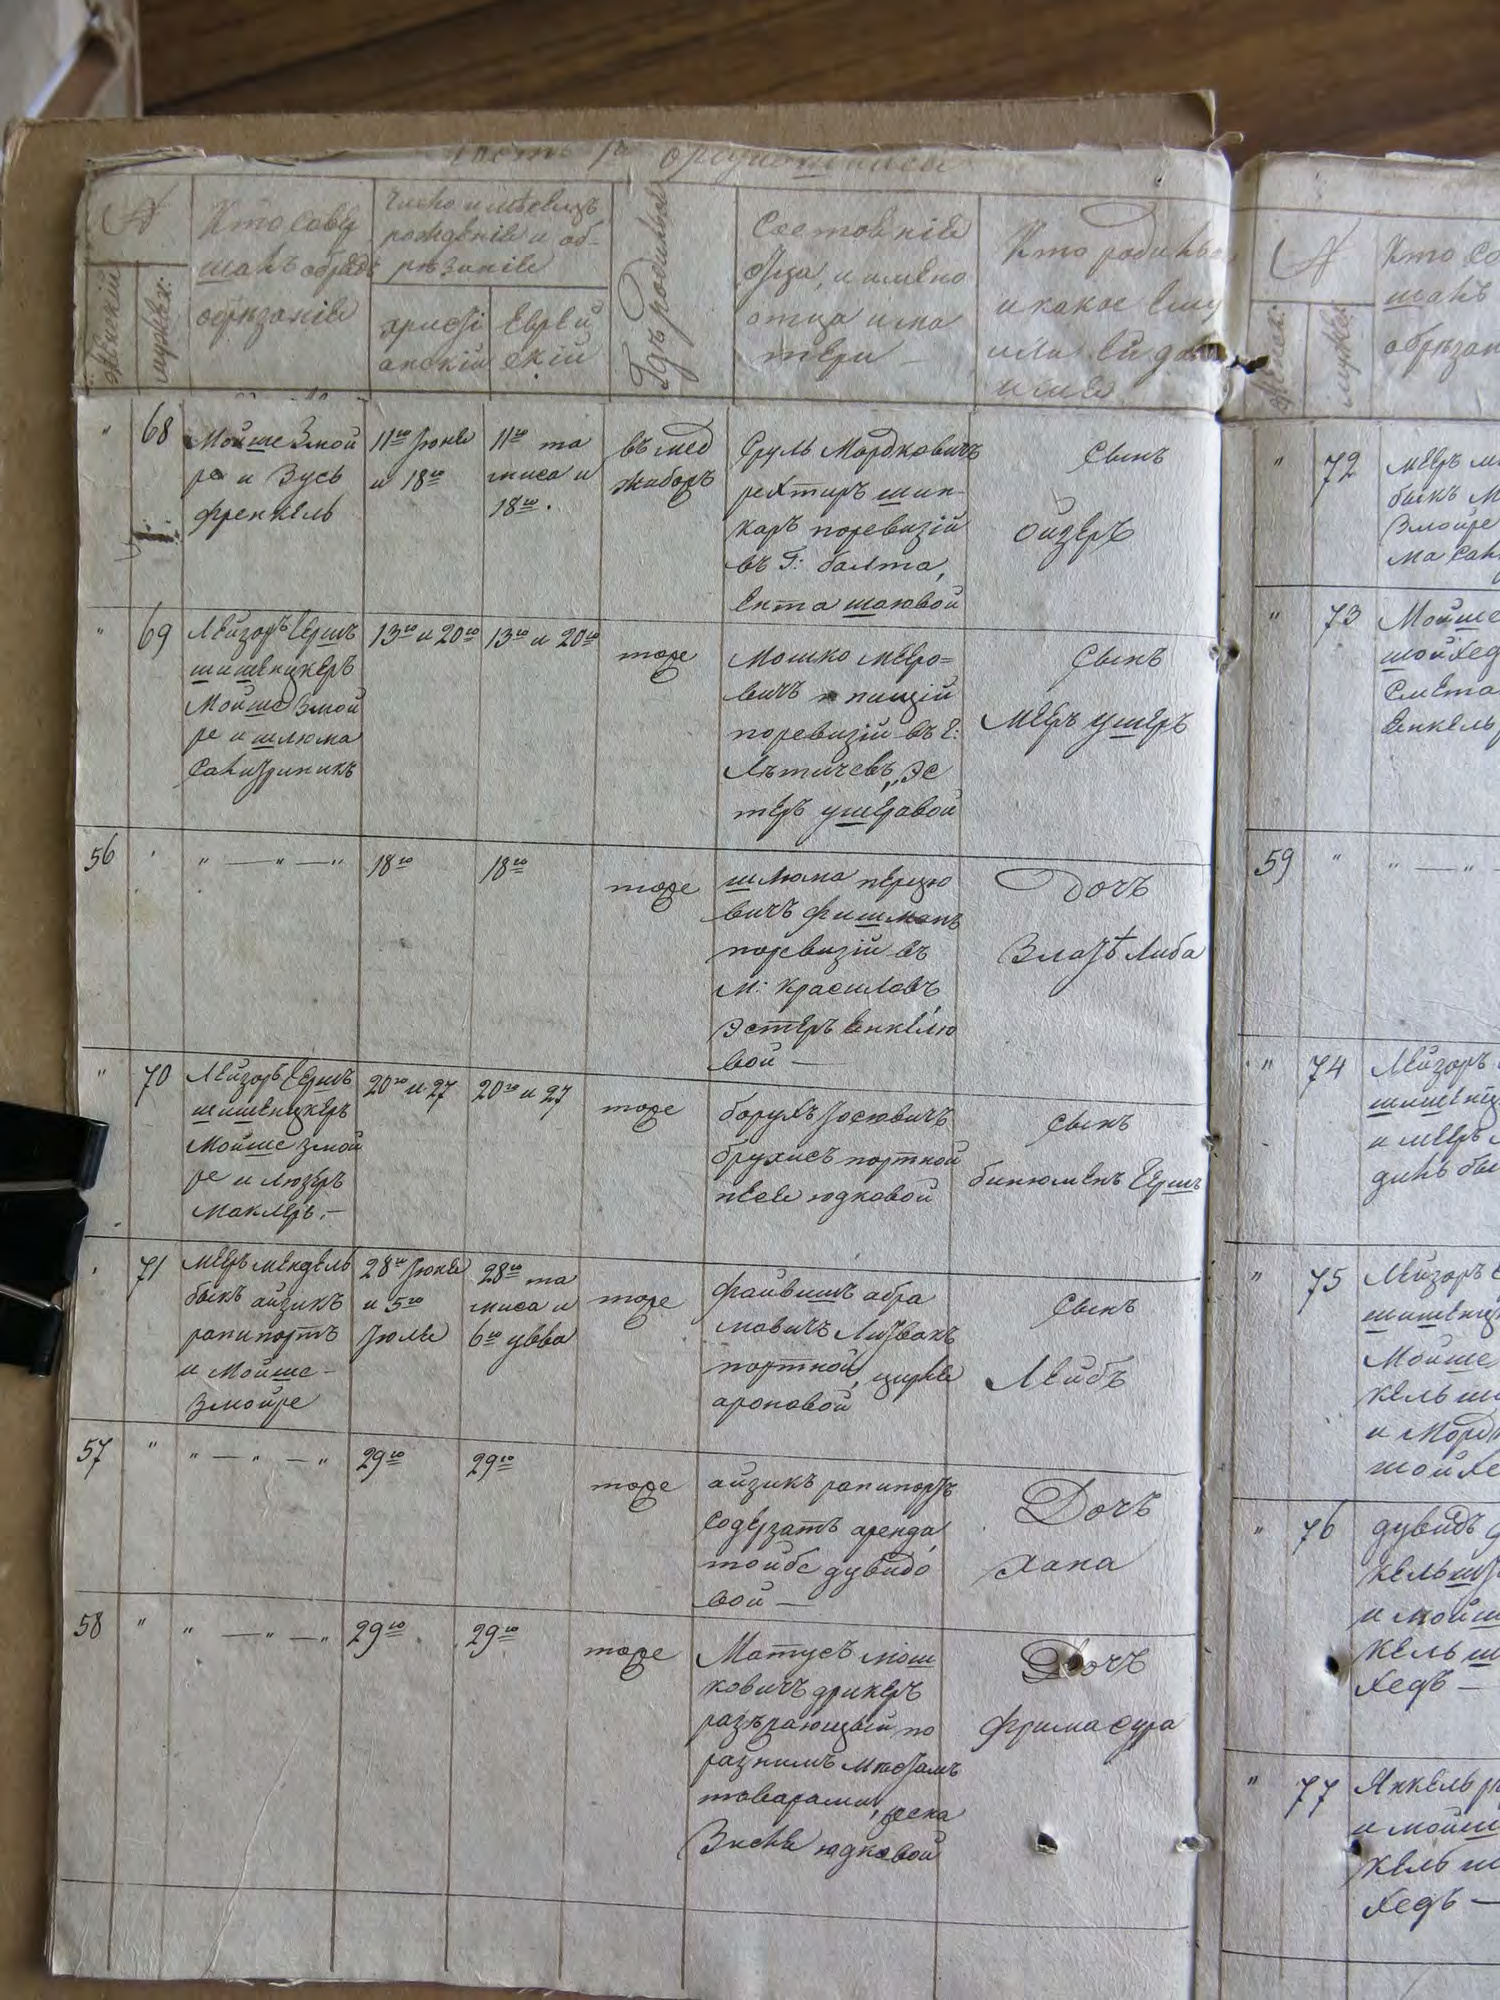 Часть 1я о родившихся
№
Женскій
мужеск:
Кто совер
шалъ обрядъ
обрѣзанія
Число и мѣсяцъ
рожденія и об-
рѣзанія
христі
анскій
Еврей
скій
Гдѣ родился
Состояніе
отца, и имена
отца и ма
тери
Кто родился
и какое ему
или ей дано
имя
" 68
Мойше Змой
ре и Зусь
френкель
11го Іюня
и 18го
11го та
миса и
18го.
въ мед
жибожъ
Сруль Мордковичъ
рехтиръ шин-
каръ поревизій
въ Г: балта,
Ента шаювой
Сынъ
ойзеръ
" 69
Лейзоръ Гершъ
шишеницкеръ
Мойше Змой
ре и шлюма
13го и 20го
13го и 20го
тоже
Мошко меро=
вичъ
поревизій въ Г:
Хѣтичевъ, Эс
теръ ушеравой
Сынъ
меръ ушеръ
56 " " — " — "
18го
18го
тоже
шлюма перцю
вичъ фишманъ
поревизій въ
м: красиловъ,
Эстеръ Енкелю
вой —
Дочъ
Злате Либа
" 70
Лейзоръ Гершъ
шишеницкеръ
Мойше змой
ре и люзеръ
маклеръ. —
20го и 27
20го и 27
тоже
борухъ Іосювичъ
брухисъ портной
песе юдковой
Сынъ
бинюменъ Гершъ
" 71
меръ мендель
быкъ айзикъ
рапипортъ
и Мойше -
Змойре
28го Іюня
и 5го
Іюля
28го та
миса и
6го
тоже
файвишъ абра
мовичъ Литвакъ
портной, цирле
ароновой
Сынъ
Лейбъ
57 " " — " — "
29го
29го
тоже
айзикъ рапипортъ
содерзатъ аренда,
тойбе дувидо
вой —
Дочъ
Хана
58 " " — " — "
29го
29го
тоже
Матусъ мош
ковичъ дрикеръ
по
разнимъ мѣстамъ
товарами,
юдковой
Дочъ
фрима сура
№
Женск:
мужск:
Кто со
шалъ
обрѣзан
" 72
меръ м
быкъ М
Змойре
" 73
Мойше
шойхед
Смета
Енкель
59 " " — "
" 74
Лейзоръ
шишениц
и меръ
" 75
Лейзоръ
шишениц
Мойше
кель ш
и Морд
шойхе
" 76
дувидъ
кель ш
и мойш
кель ш
хедъ —
" 77
Янкель р
и мойш
кель ш
хедъ —